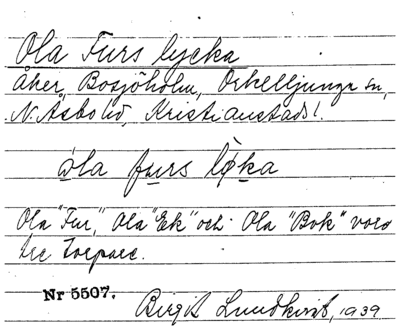 Ola Furs lycka
Åker, Bosjöholm, Örkelljunga sn,
N. Åsbo hd, Kristianstads l.
ola furs løka
Ola "Fur," Ola "Ek" och Ola "Bok" voro
tre torpare.
Nr 5507.
Birgit Lundkvist, 1939